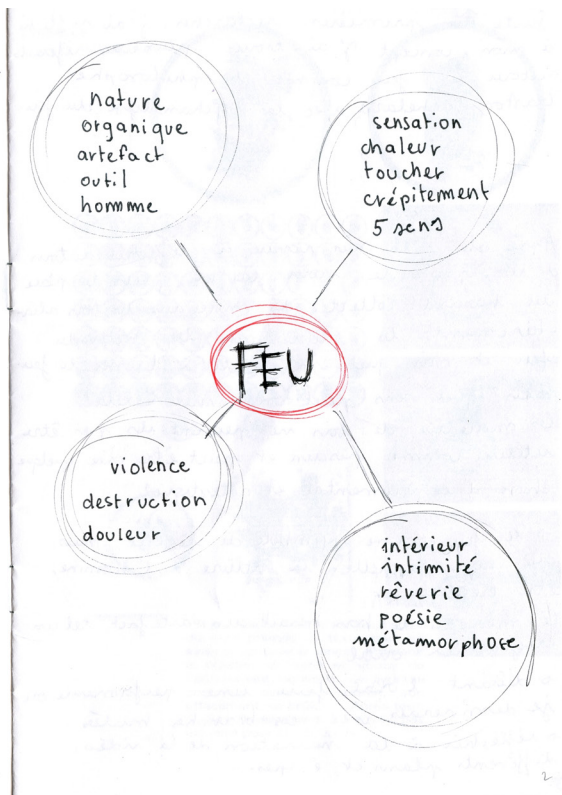 nature
organique
artefact
outil
hommme
sensation
chaleur
toucher
crépitement
5 sens
FEU
violence
destruction
douleur
intérieur
intimité
rêverie
poésie
métamorphose
2